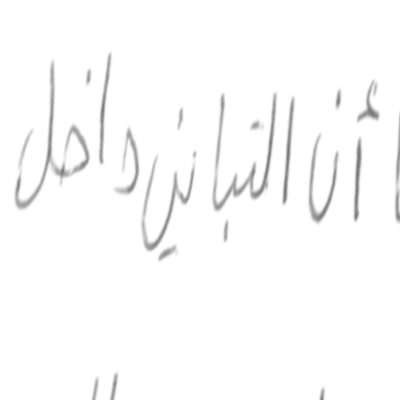 أن التباين داخل